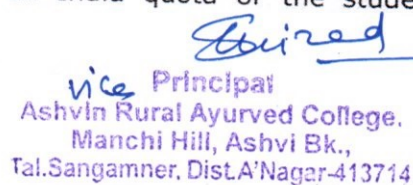 quota of the stude
vice Principal
Ashvin Rural Ayurved College.
Manchi Hill, Ashvi Bk.,
Tal.Sangamner. Dist.A'Nagar-413714